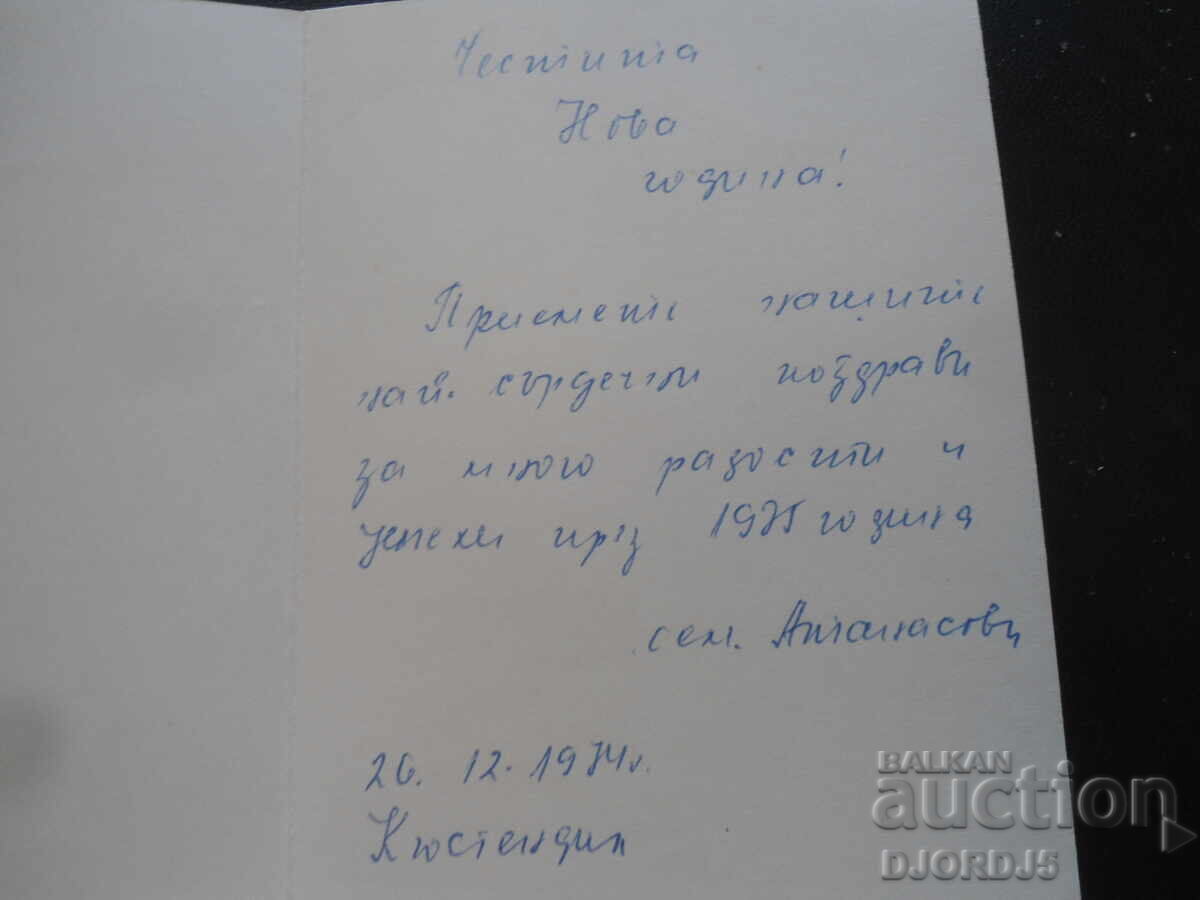 Честита
Нова
година!
Приемете нашите
най. сърдечни поздрави
за много радости и
успехи през 1975 година
сем. Атанасови
26. 12. 1974 г.
Кюстендил
BALKAN
auction
DJORDJ5